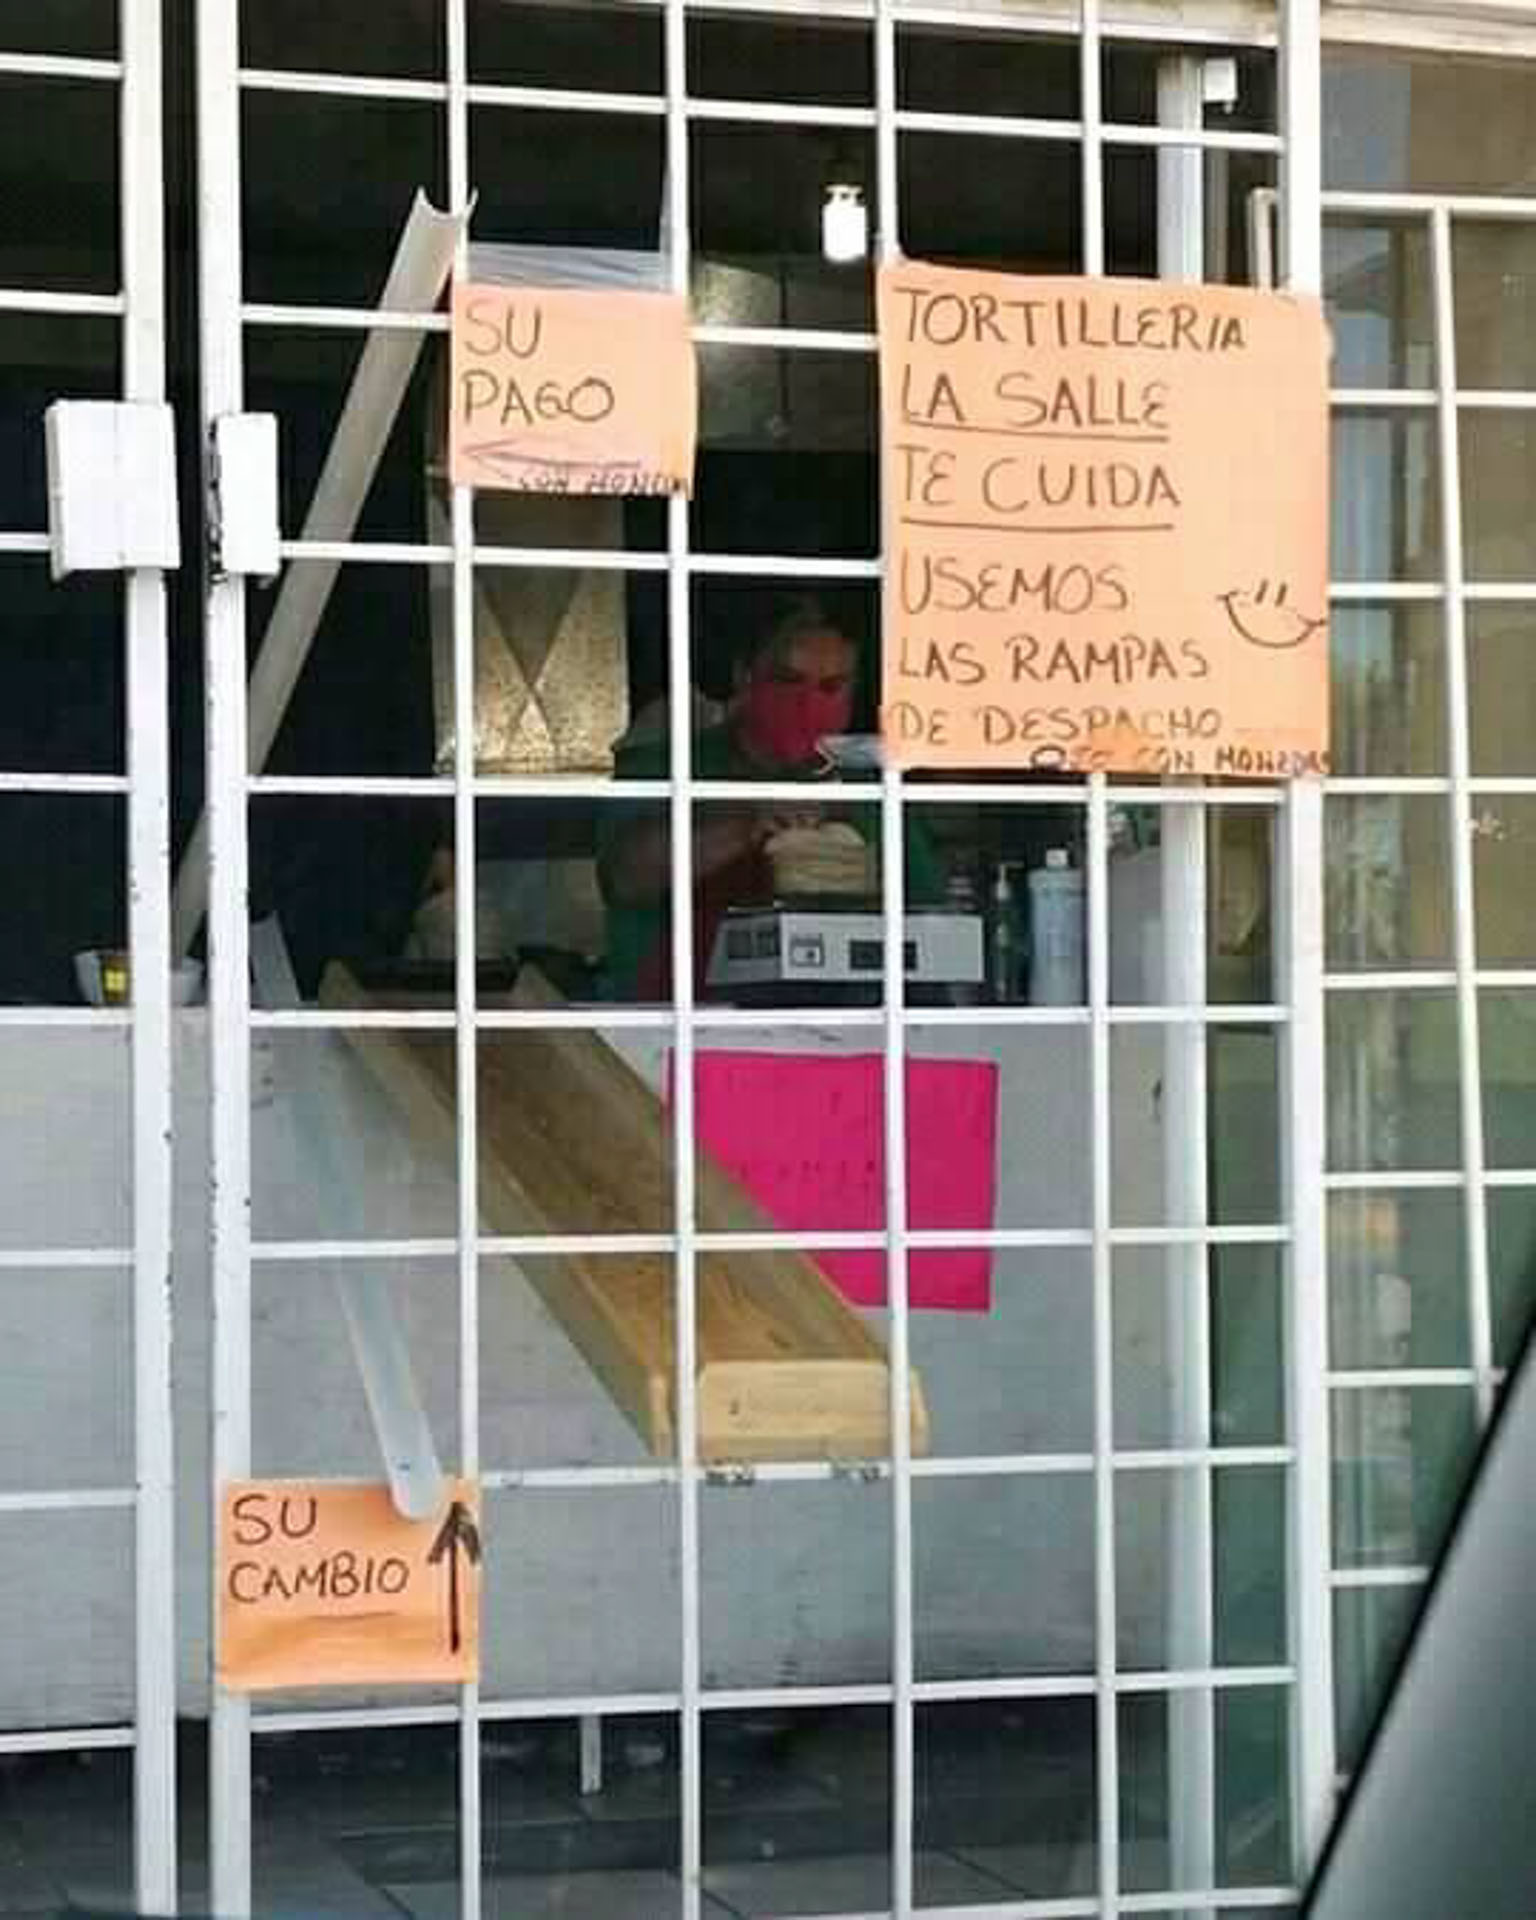 SU
PAGO
CON
TORTILLERIA
LA SALLE
TE CUIDA
USEMOS
LAS RAMPAS
DE DESPACHO
CON MONEDAS
SU
CAMBIO